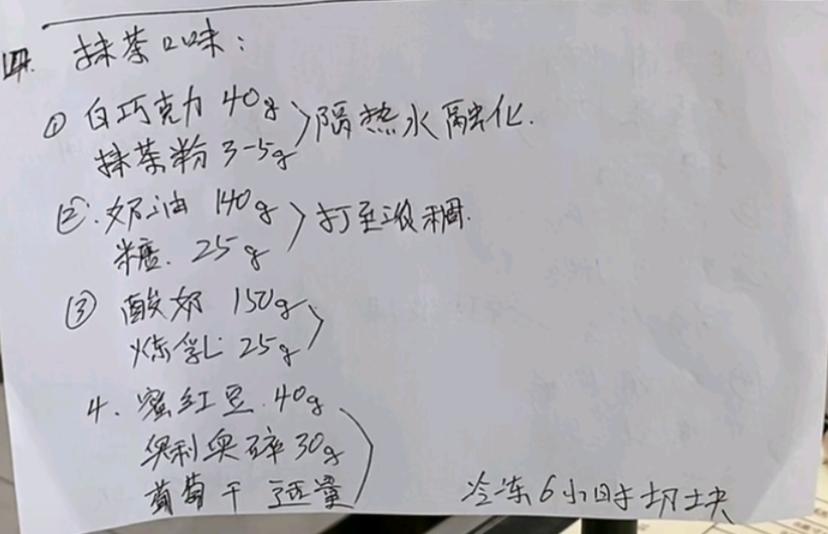 四. 抹茶口味：
① 白巧克力 40g 〉隔热水融化.
抹茶粉 3-5g
②. 奶油 140g 〉打至浓稠.
糖. 25g
③ 酸奶 150g
炼乳 25g
4. 蜜红豆. 40g
奥利奥碎 30g
葡萄干 适量
冷冻6小时切块